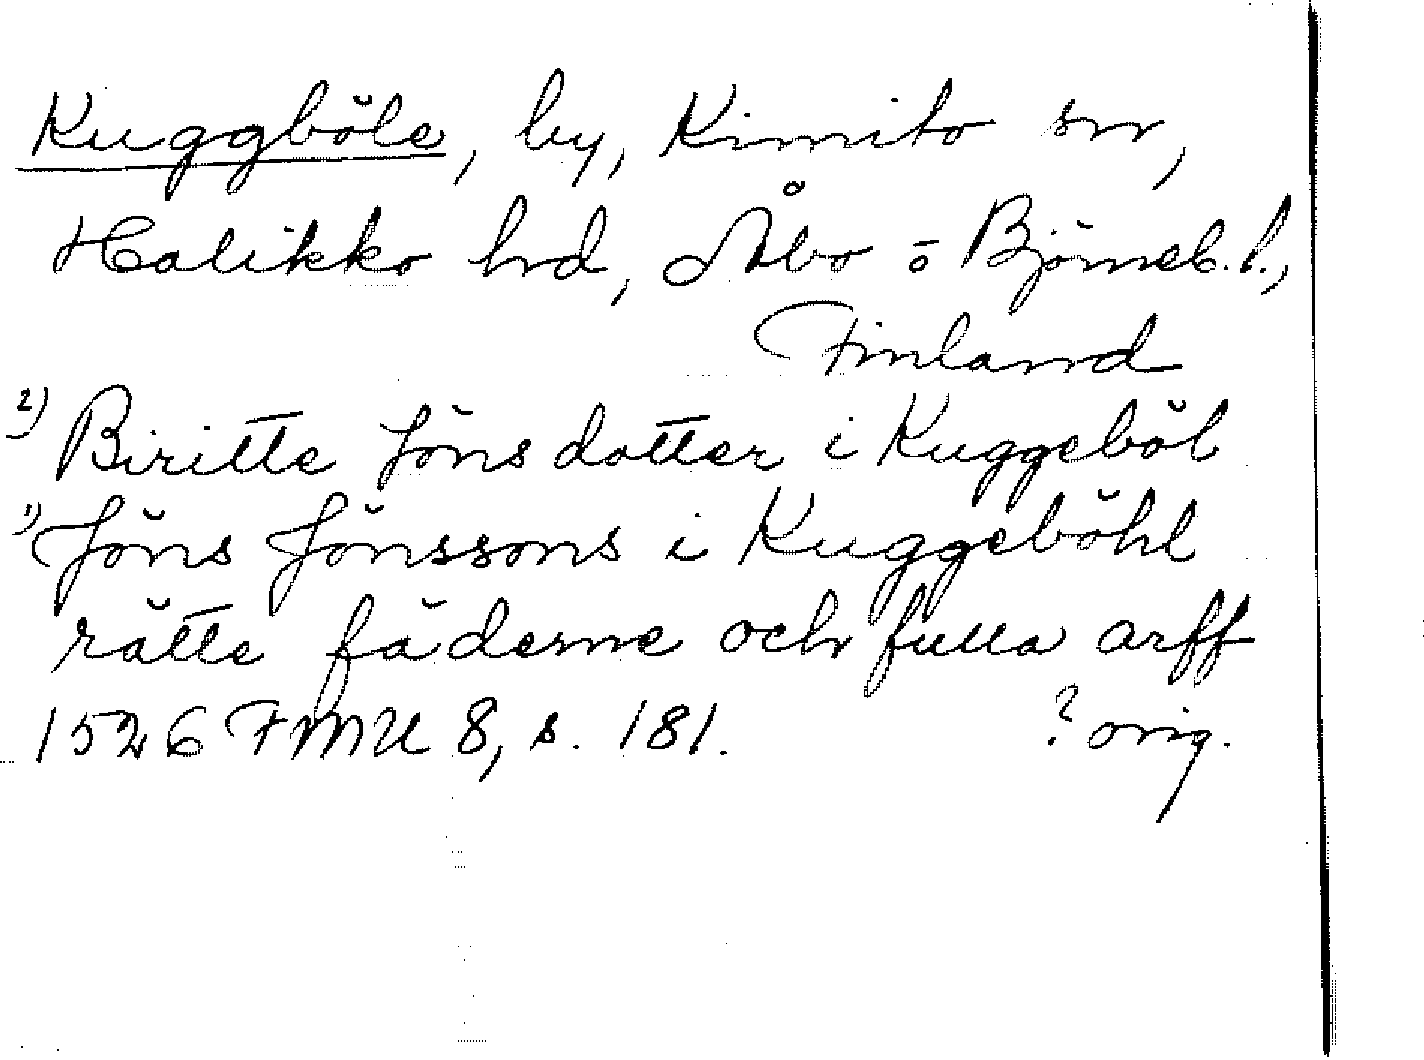 Kuggböle, by, Kimito sn,
Halikko hd, Åbo o Björneb. l.,
Finland
2) Biritte Jönsdotter i Kuggeböl
1) Jöns Jönssons i Kuggeböhl
rätte fäderne och fulla arff
1526 FMU 8, s. 181. ? orig.